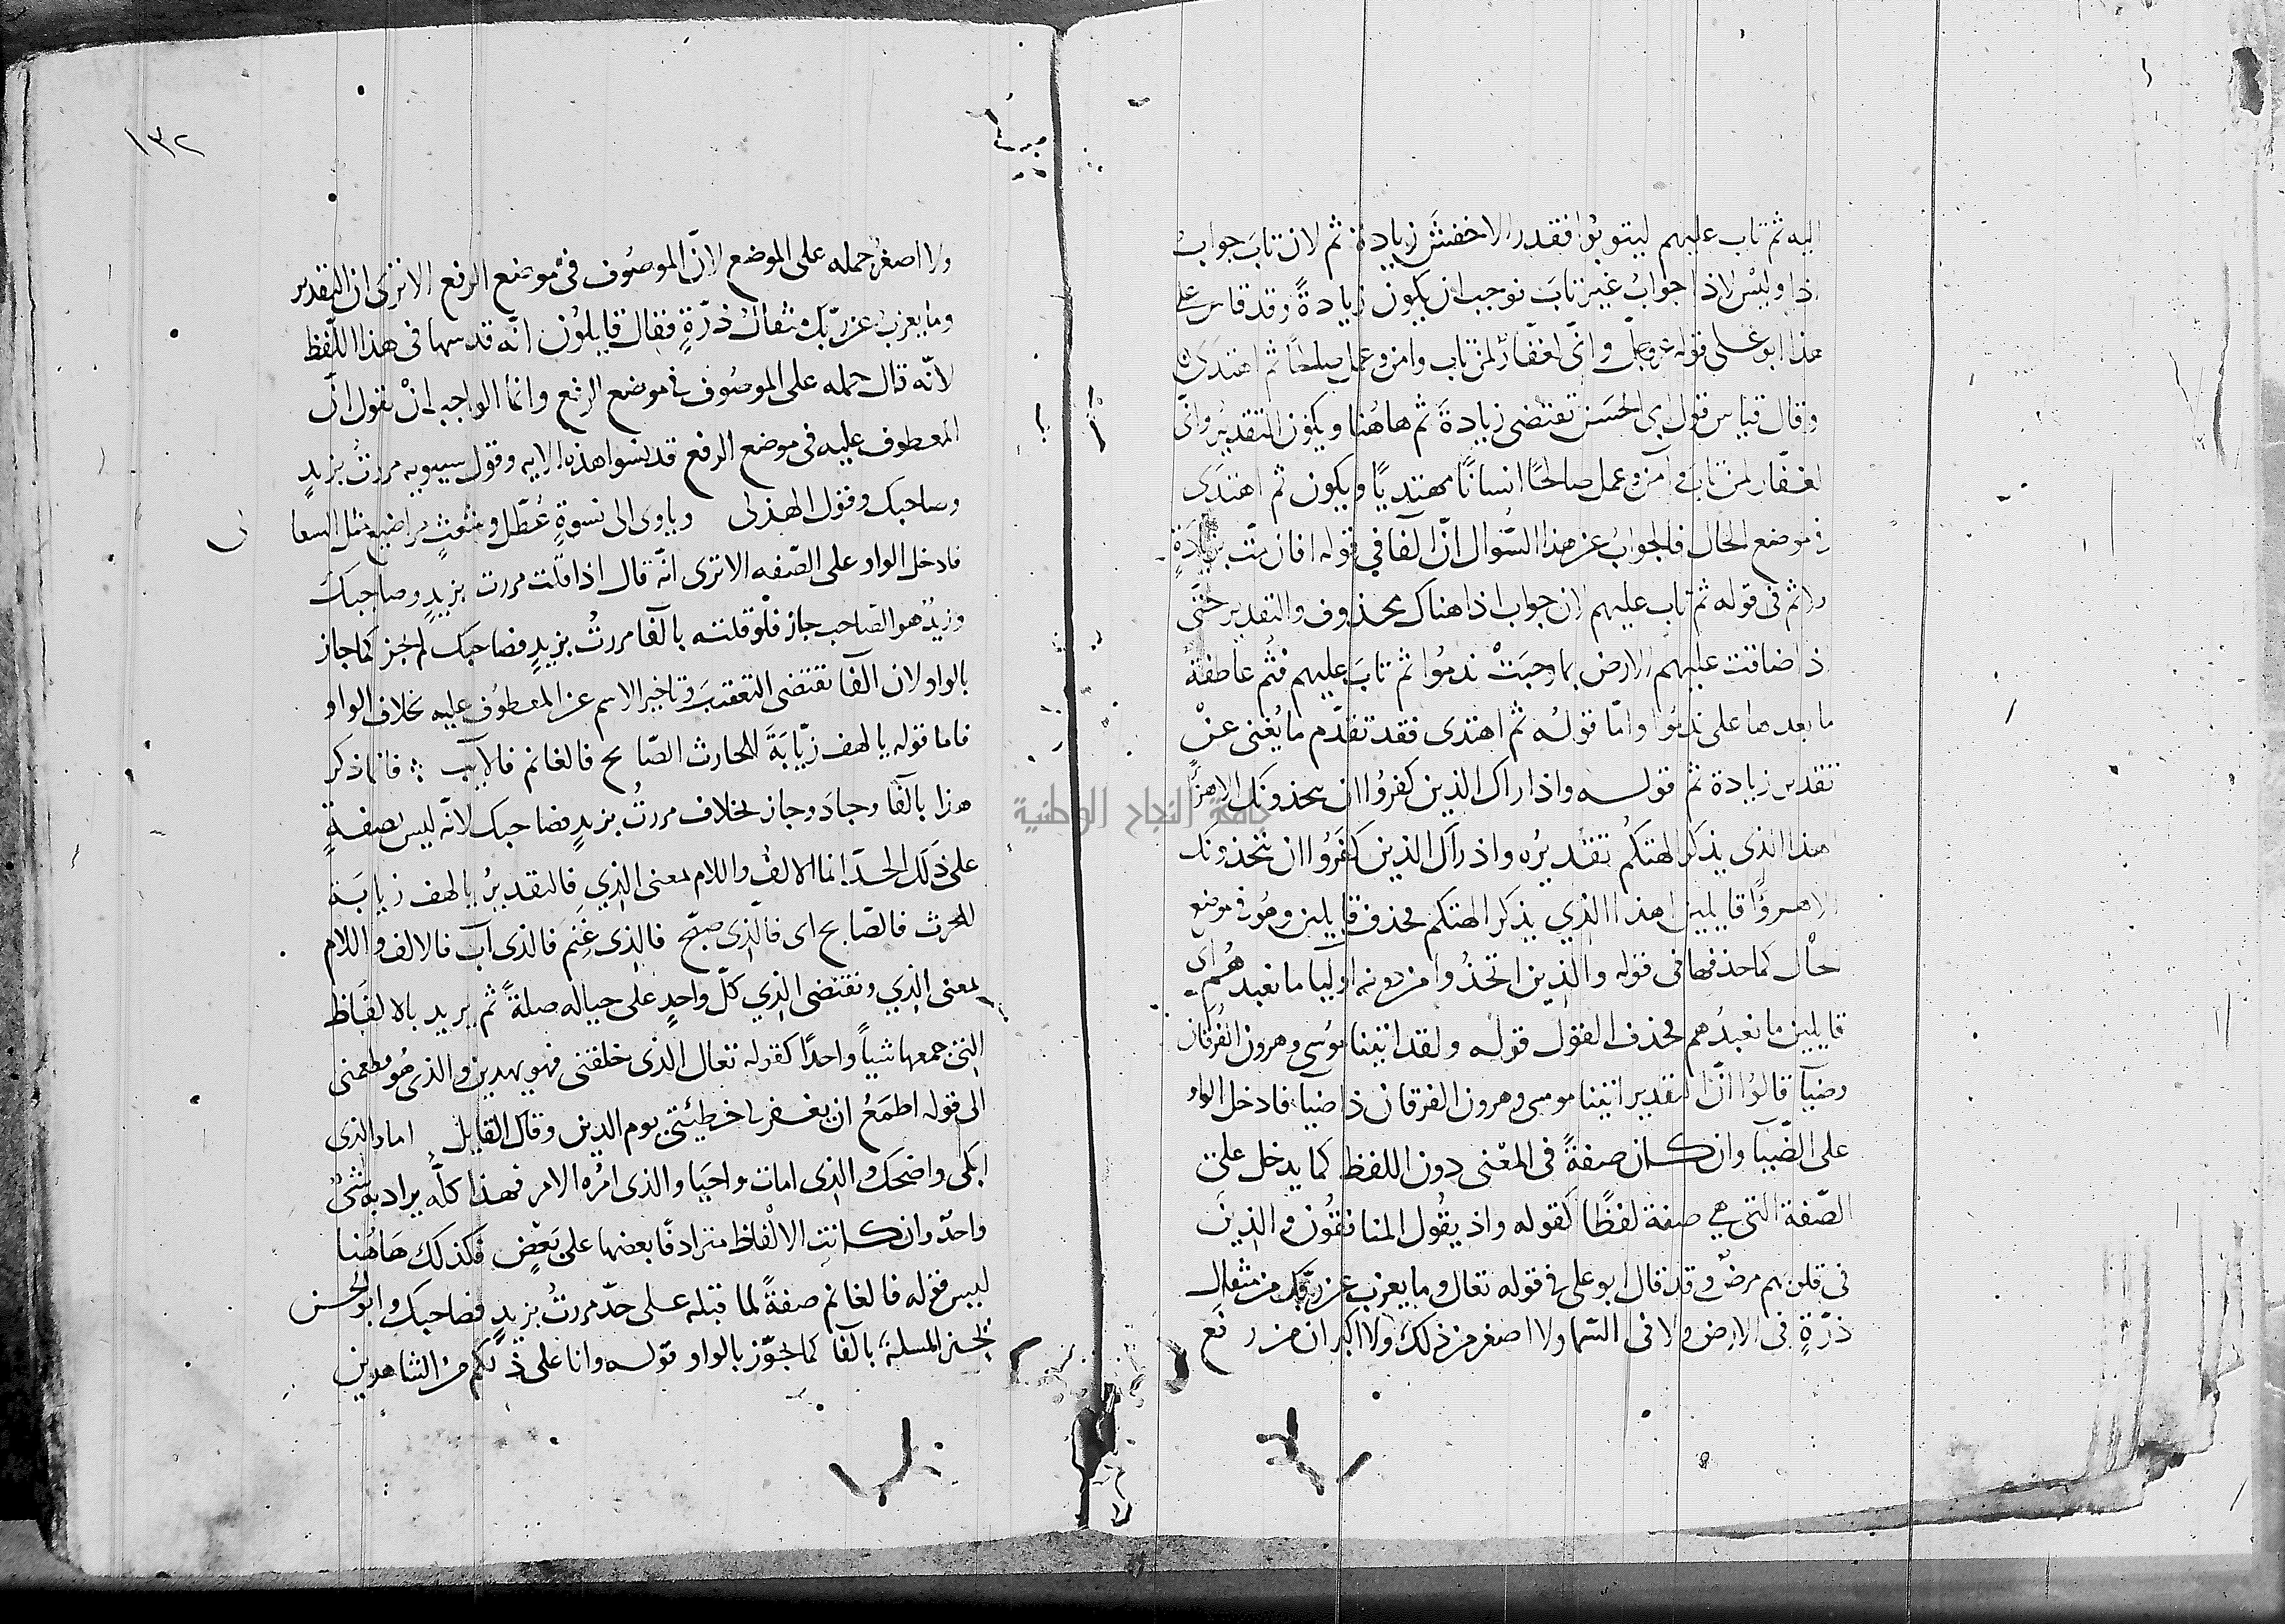 اليه ثم تاب عليهم ليتوبوا فقدر الاخفش زيادة ثم لان تاب جواب
اذا وليس لاذا جواب غير تاب فوجب ان يكون زيادةً وقد قاس على
هذا ابو على قوله عز وجل وانى لغفار لمن تاب وامن وعمل صلحًا ثم اهتدى
وقال قياس قول ابى الحسن تقتضى زيادة ثم هاهنا ويكون التقدير وانى
لغفار لمن تاب وآمن وعمل صالحًا انسانًا مهتديًا ويكون ثم اهتدى
فى موضع الحال فالجواب عن هذا السّوال انّ الفآ فى قوله افان متّ بزيادةٍ
ولا ثم فى قوله ثم تاب عليهم لان جواب اذا هناك محذوف والتقدير حتى
اذا ضاقت عليهم الارض بما رحبت ندموا ثم تاب عليهم فثم عاطفة
ما بعدها على ندموا وامّا قوله ثم اهتدى فقد تقدّم ما يُغنى عنْ
تقدير زيادة ثم قوله واذا راك الذين كفروا ان يتخذونك الا هزًا
اهذا الذى يذكر الهتكم تقديرُه واذا رآك الذين كفَرُوا ان يتخذونك
الا هزوًا قايلين اهذا الذي يذكر الهتكم فحذف قايلين وهُو فى موضع
الحال كما حذفها فى قوله والذين اتخذوا من دونه اوليا ما نعبدهُم اى
قايلين ما نعبدُهم فحذف القول قوله ولقد اتينا موسى وهرون الفُرقان
وضيآ قالوا انّ التقدير اتينا موسى وهرون الفرقان ذا ضيا فادخل الواو
على الضّيا وان كان صفةً فى المعْنى دون اللفظ كما يدخل على
الصّفة التى هى صفة لفظًا كقوله واذ يقُول المنافقُون والذينَ
فى قلوبهم مرض وقد قال ابو على فى قوله تعالى وما يعزب عن ربّك من مثقال
ذرّةٍ فى الارض ولا فى السّما ولا اصغر من ذلك ولا اكبر ان من رفع
١٣٢
ولا اصغرُ حمله على الموضع لانّ الموصُوف فى موضع الرفع الا ترى ان التقدير
وما يعزبُ عن ربّك مثقالُ ذرّةٍ فقال قايلُون انّه قد سها فى هذا اللّفظ
لانّه قال حمله على الموصُوف فى موضع الرفع وانما الواجب انْ نقول انّ
المعطوف عليه فى موضع الرفع قد نسوا هذه الايه وقول سيبويه مررتُ بزيدٍ
وصاحبك وقول الهذلى وياوى الى نسوةٍ عُطّل وشعثٍ مراضيع مثل السعا
لى
فادخل الواو على الصّفه الا ترى انّه قال اذا قلت مررت بزيدٍ وصاحبك
وزيدٌ هو الصّاحب جاز فلْو قلته بالفآ مررتُ بزيدٍ فصاحبك لم يجز كما جاز
بالواو لان الفآ تقتضى التعقيب وتاخير الاسم عن المعطوُف عليه بخلاف الواو
فاما قوله يا لهف زيّابَةَ للحارث الصّابح فالغانم فالآيب فانما ذكر
هذا بالفآ وجاد وجاز بخلاف مررتُ بزيدٍ فصاحبك لانّه ليس بصفةٍ
على ذلك الحدّ انما الالف واللام لمعنى الذي فالتقديرُ يا لهف زيابَة
للحرث فالصّابح اى فالّذى صبّح فالذى غَنِمَ فالذى آب فالالف واللام
لمعنى الذي ونقتضى الذي كلّ واحدٍ على حياله صلةً ثم يريد بالالفاظ
التى جمعها شياً واحدًا كقوله تعالى الذى خلقنى فهو يهدين والذى هُو يطعمنى
الى قوله اطمَعُ ان يغفر لى خطيئتى يوم الدين وقال القايل اما والذى
ابكى واضحك والذى امات واحيَا والذى امرُه الامر فهذا كلّه يراد به شىٌ
واحدٌ وان كانت الالْفاظ مترادفًا بعضها على بَعْضٍ فكذلك هَاهُنا
ليس قوله فالغانم صفةً لما قبله على حدّ مررتُ بزيدٍ فصاحبك وابو الحسن
يُجيز المسلة بالفآ كما يجوّز بالواو قوله وانا على ذلكم من الشاهدين
جامعة النجاح الوطنية